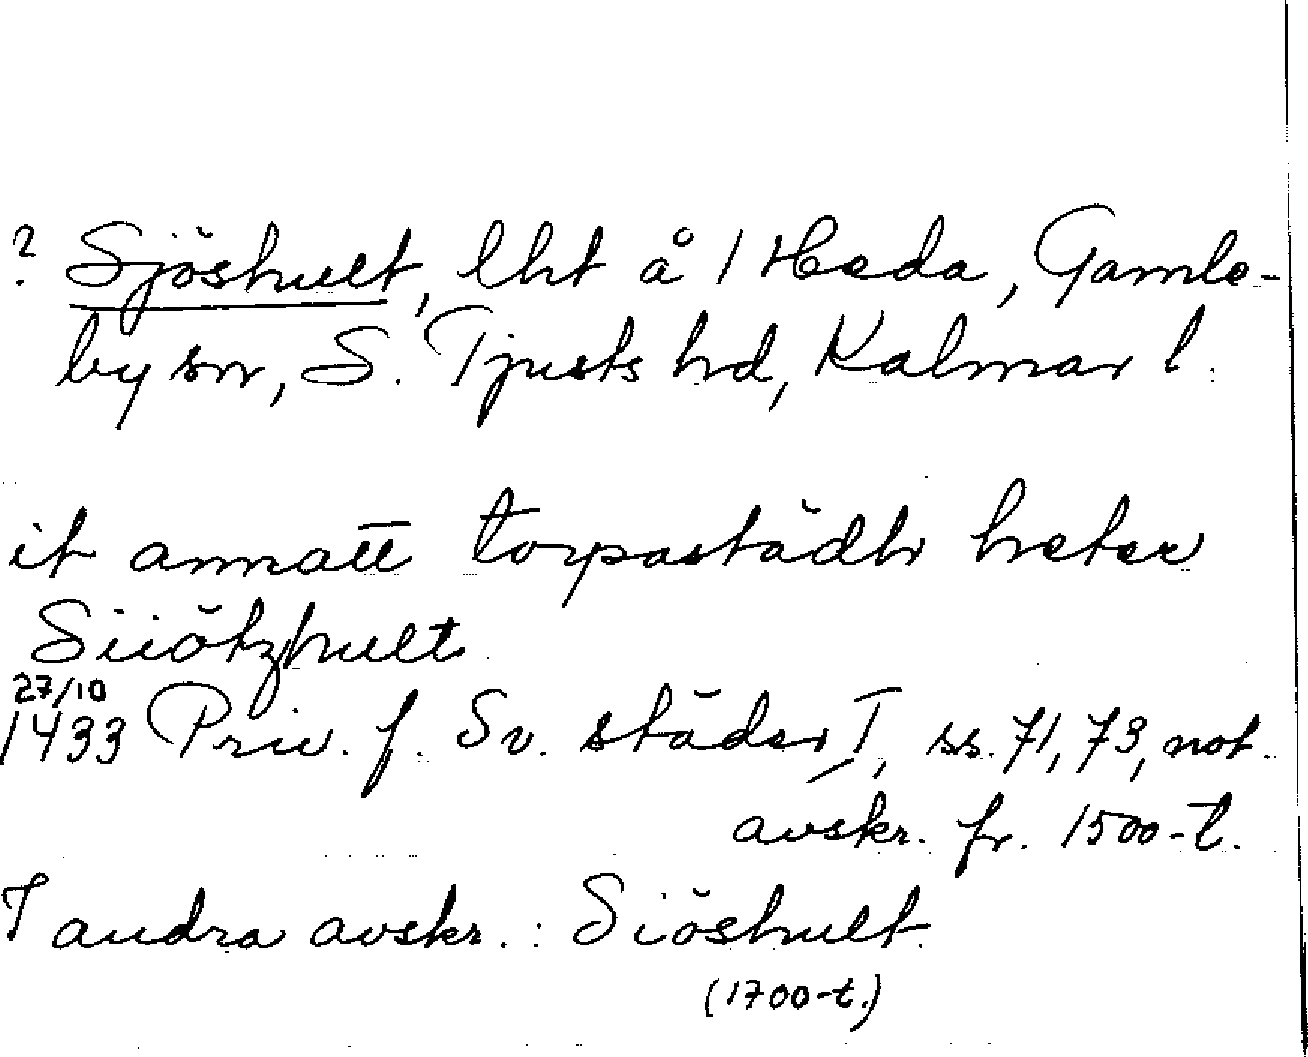 ? Sjöshult, lht å 1 Heda, Gamle-
by sn, S. Tjusts hd, Kalmar l.
it annatt torpastädh heter
Siiötzhult
27/10
1433 Priv. f. Sv. städer I, ss. 71, 73, not.
avskr. fr. 1500-t.
I andra avskr.: Siöshult
(1700-t.)